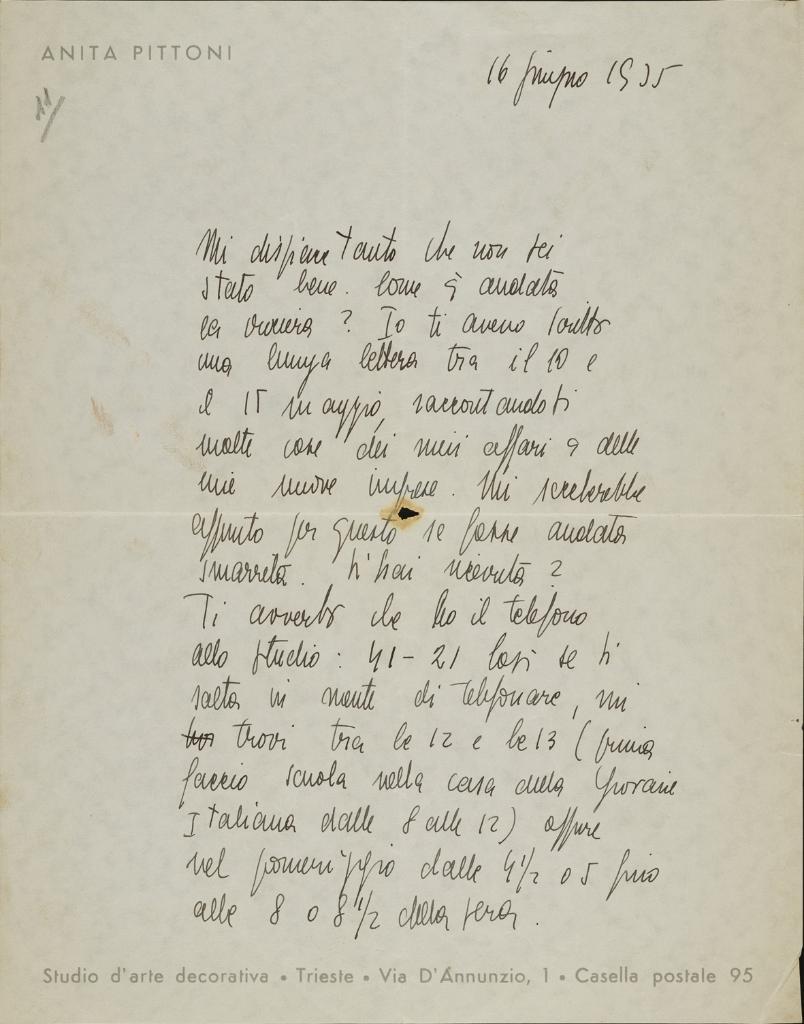 ANITA PITTONI
16 giugno 1935
11/
Mi dispiace tanto che non sei
stato bene. Come è andata
la crociera? Io ti avevo scritto
una lunga lettera tra il 10 e
il 15 maggio, raccontandoti
molte cose dei miei affari e delle
mie nuove imprese. Mi seccherebbe
appunto per questo se fosse andata
smarrita. L'hai ricevuta?
Ti avverto che ho il telefono
allo studio: 41-21 Così se ti
salta in mente di telefonare, mi
trovi tra le 12 e le 13 (prima
faccio scuola nella casa della Giovane
Italiana dalle 8 alle 12) oppure
nel pomeriggio dalle 4½ o 5 fino
alle 8 o 8½ della sera.
Studio d'arte decorativa • Trieste • Via D'Annunzio, 1 • Casella postale 95